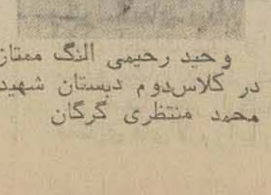 وحید رحیمی النگ ممتاز
در کلاس‌دوم دبستان شهید
محمد منتظری گرگان